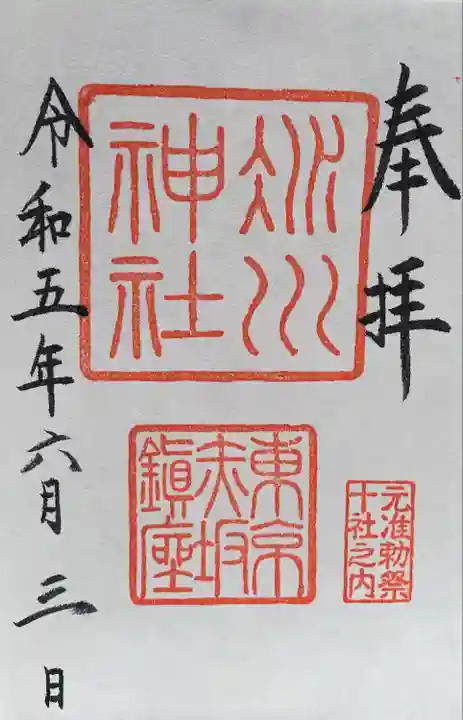 奉拝
氷川
神社
東京
赤坂
鎮座
元准勅祭
十社之内
令和五年六月三日